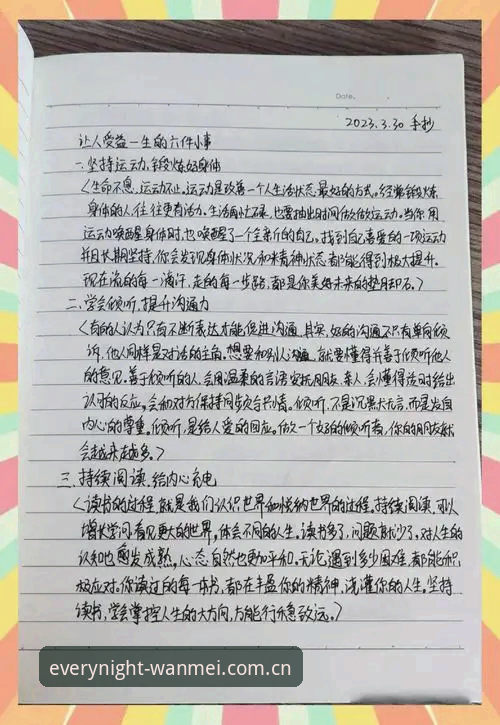 Date.
2023.3.30 手抄
让人受益一生的六件小事
一.坚持运动,锻炼好身体
〈生命不息,运动不止。运动是改善一个人生活状态最好的方式。经常锻炼
身体的人,往往更有活力。生活再忙碌,也要抽出时间做做运动。当你用
运动唤醒身体时,也唤醒了一个全新的自己。找到自己喜爱的一项运动
并且长期坚持,你会发现身体状况和精神状态都能得到极大提升。
现在流的每一滴汗,走的每一步路,都是你美好未来的垫脚石。〉
二.学会倾听,提升沟通力
〈有的人认为只有不断表达才能促进沟通,其实,好的沟通不只有单向倾
诉,他人同样是对话的主角。想要和别人沟通,就要懂得并善于倾听他人
的意见。善于倾听的人,会用温柔的言语安抚朋友、亲人,会懂得适时给出
认可的反应,会和对方保持同步的合书情。倾听,不是沉默无言,而是发自
内心的尊重。倾听,是给人爱的回应。做一个好的倾听者,你的朋友就
会越来越多。〉
三.持续阅读,给内心充电
〈读书的过程,就是我们认识世界和悦纳世界的过程。持续阅读,可以
增长学问,看见更大的世界,体会不同的人生。读书多了,问题就少了。对人生的
认知也愈发成熟,心态自然也更加平和。无论遇到多少困难,都能积
极应对。你读过的每一本书,都在丰盈你的精神,浇灌你的人生。坚持
读书,学会掌控人生的大方向,方能行稳致远。〉
everynight-wanmei.com.cn